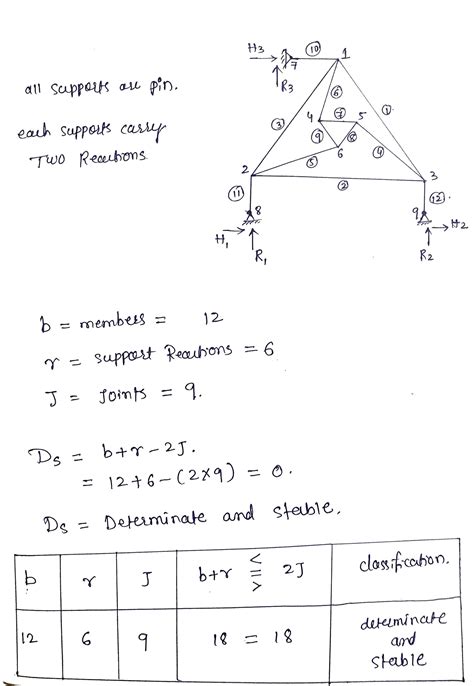 H3
⑩
1
7
R3
all supports are pin.
each supports carry
TWO Reactions
⑥
①
4
⑦
5
③
⑨
⑧
6
④
2
⑤
3
⑪
②
⑫
8
9
H1
H2
R1
R2
b = members = 12
r = support Reactions = 6
J = Joints = 9.
Ds = b+r-2J.
= 12+6-(2×9) = 0.
Ds = Determinate and stable.
b r J b+r < = > 2J classification.
12 6 9 18 = 18 determinate
and
stable